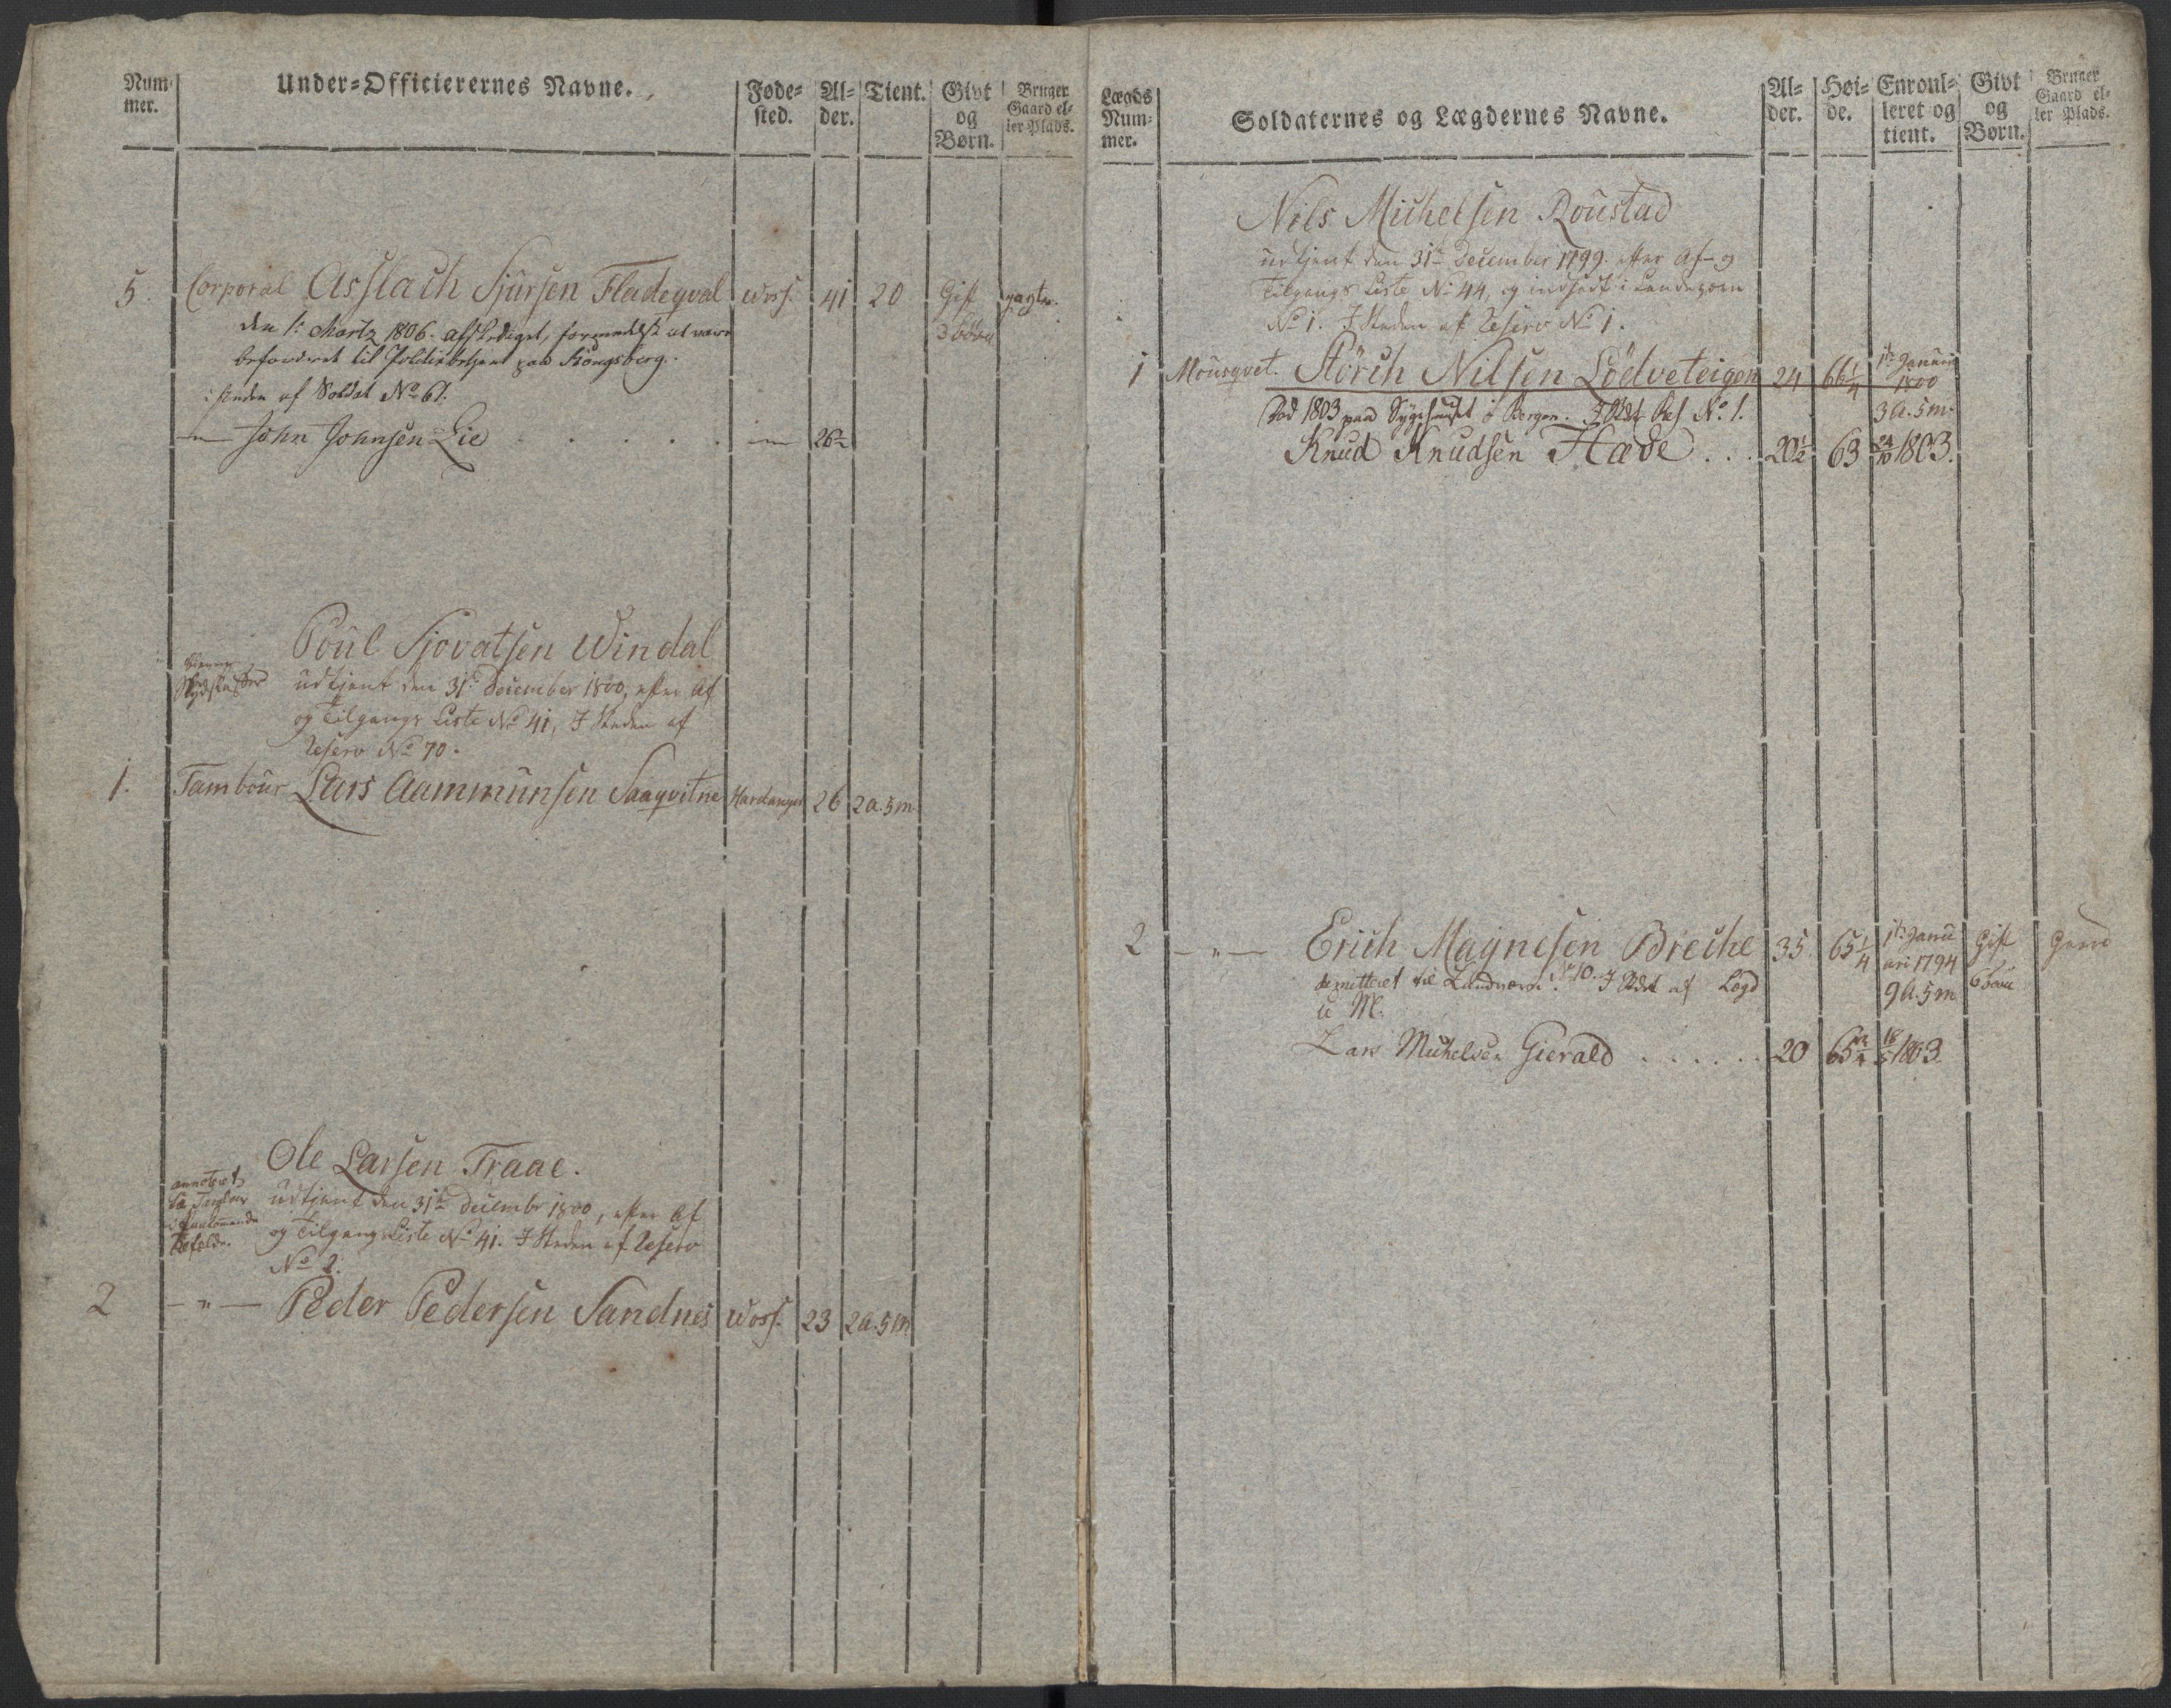 Num- mer.
Under=Officierernes Navne.
Føde= sted.
Al= der.
Tient.
Givt og Børn.
Bruger Gaard el= ler Plads.
5. Corporal Asslach Sjursen Fladeqval Woss. 41 20 Gift
3 børn
den 1. Martz 1806. afskediget, formedelst at være
befordret til Politiebetjent paa Kongsberg.
i steden af Soldat No 61.
—"— John Johnsen Lie . . . . . —"— 26½
Poul Sjovatsen Windal
udtjent den 31te December 1800, efter Af
og Tilgangs Liste No 41, I Steden af
Reserv No 70.
1. Tambour Lars Aammunsen Saaqvitne Hardanger 26 2a. 5m.
Ole Larsen Traae.
udtjent den 31te December 1800, efter Af
og Tilgangs Liste No 41. I Steden af Reserv
No 2.
2 —"— Peder Pedersen Sandnes Woss. 23 2a. 5m
Lægds Num= mer.
Soldaternes og Lægdernes Navne.
Al= der.
Høi= de.
Enroul= leret og tient.
Givt og Børn.
Bruger Gaard el= ler Plads.
Nils Michelsen Roustad
udtjent den 31te December 1799. efter Af- og
Tilgangs Liste No 44, og indsadt i Landeværn
No 1. I Steden af Reserv No 1.
1 Mousqvet. Störch Nilsen Lödveteigen 24 66¼ 1te Januari
1800
3a. 5m.
Død 1803 paa Sygehuuset i Bergen. I Stedt Res No 1.
Knud Knudsen Hæve . . . 20½ 63 24/10 1803.
2 —"— Erich Magnesen Breche 35. 65¼ 1te Janu Gift Gaard
ari 1794
9a. 5m. 6 Børn
demitteret til Landværn No 10. I Stedt af Lægd
u M.
Lars Michelsen Gierald . . . . . . 20 65¾ 18/5 1803.